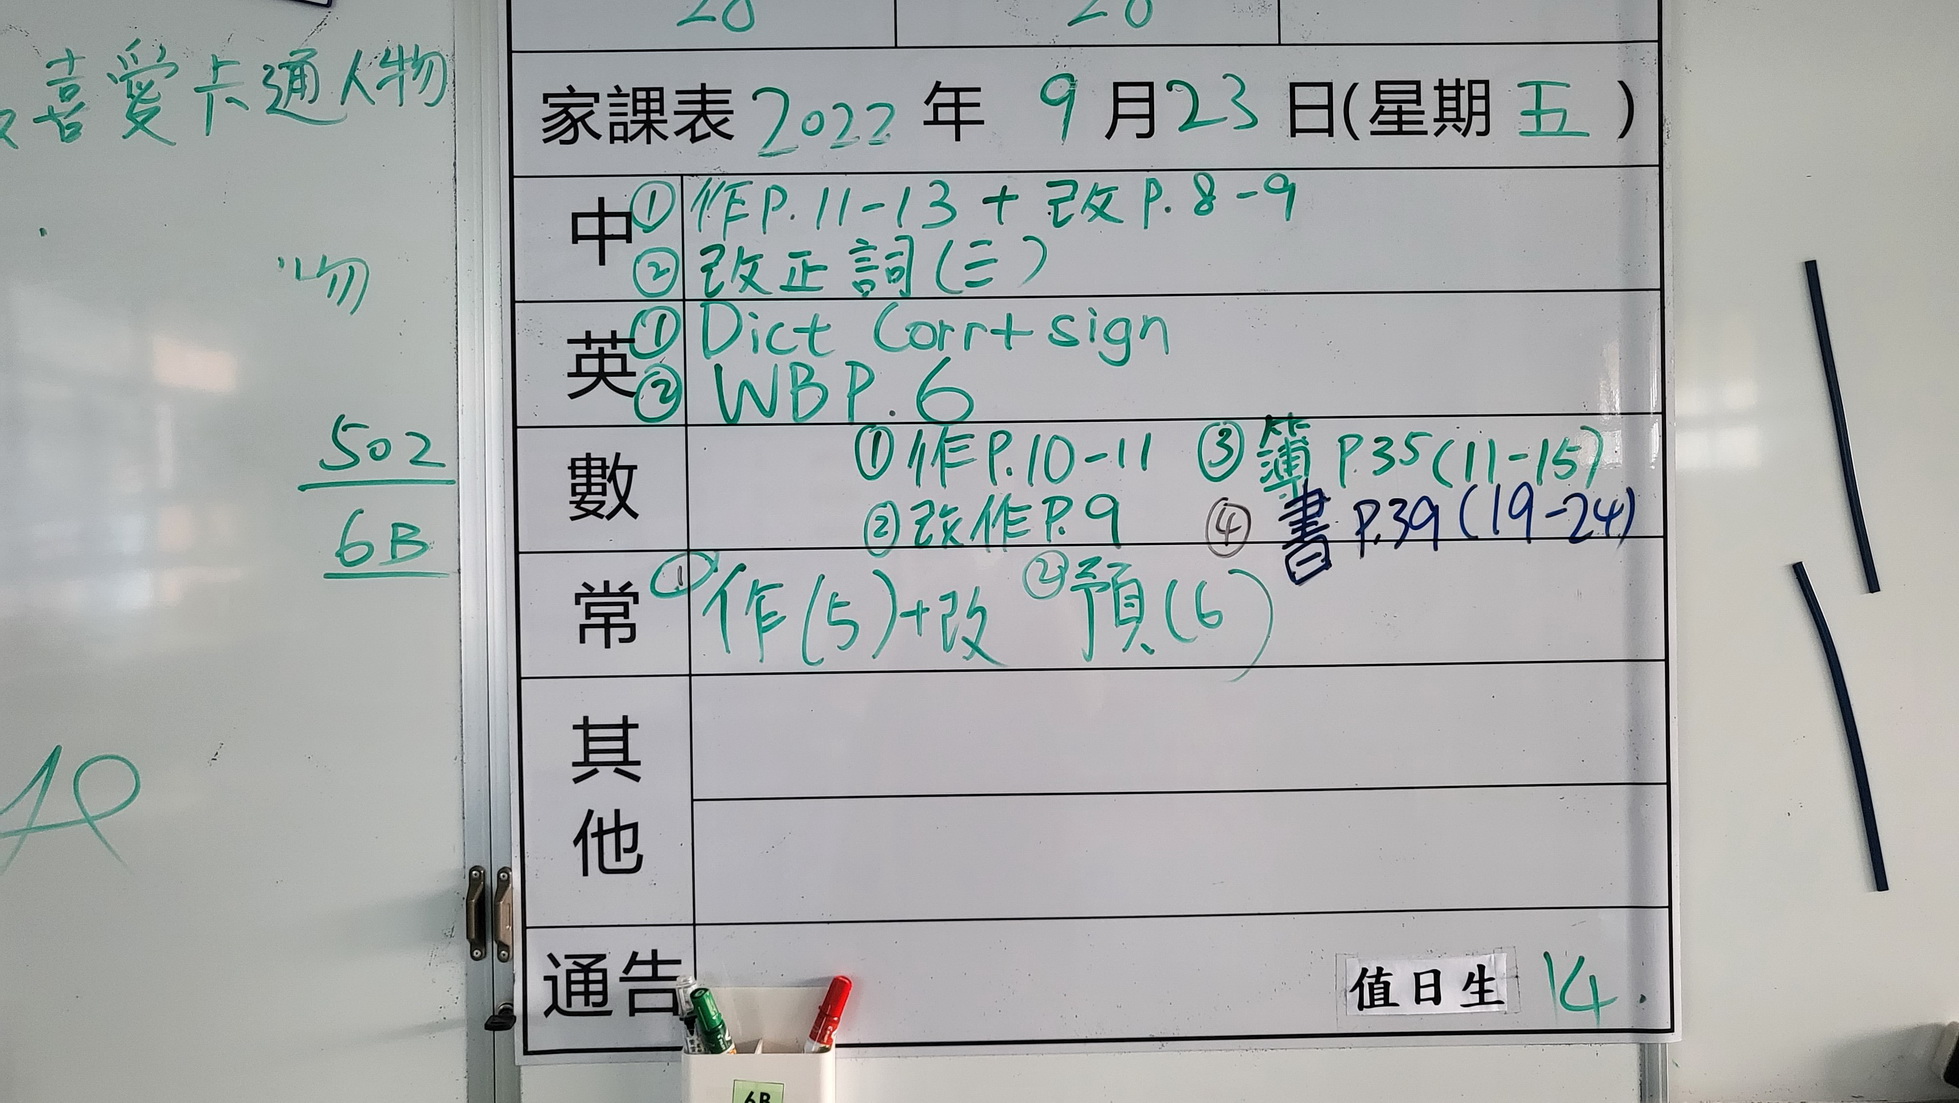 喜愛卡通人物
物
502
6B
28 28
家課表 2022 年 9 月 23 日(星期 五 )
中 ① 作P.11-13 + 改P.8-9
② 改正詞(三)
英 ① Dict Corr+sign
② WB P.6
數 ① 作P.10-11 ③ 簿 P.35(11-15)
② 改作P.9 ④ 書 P.39(19-24)
常 ① 作(5)+改 ② 預(6)
其他
通告 值日生 14.
6B